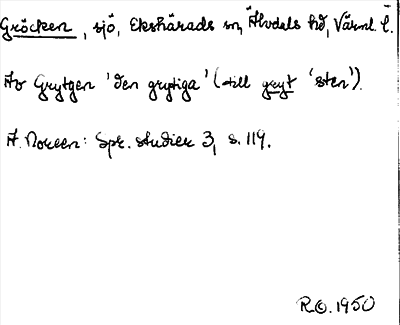 Gröcken, sjö, Ekshärads sn, Älvdals hd, Värml. l.
Av Grytgen 'den grytiga' (till gryt 'sten').
A. Noreen: Spr. studier 3, s. 119.
R.O. 1950